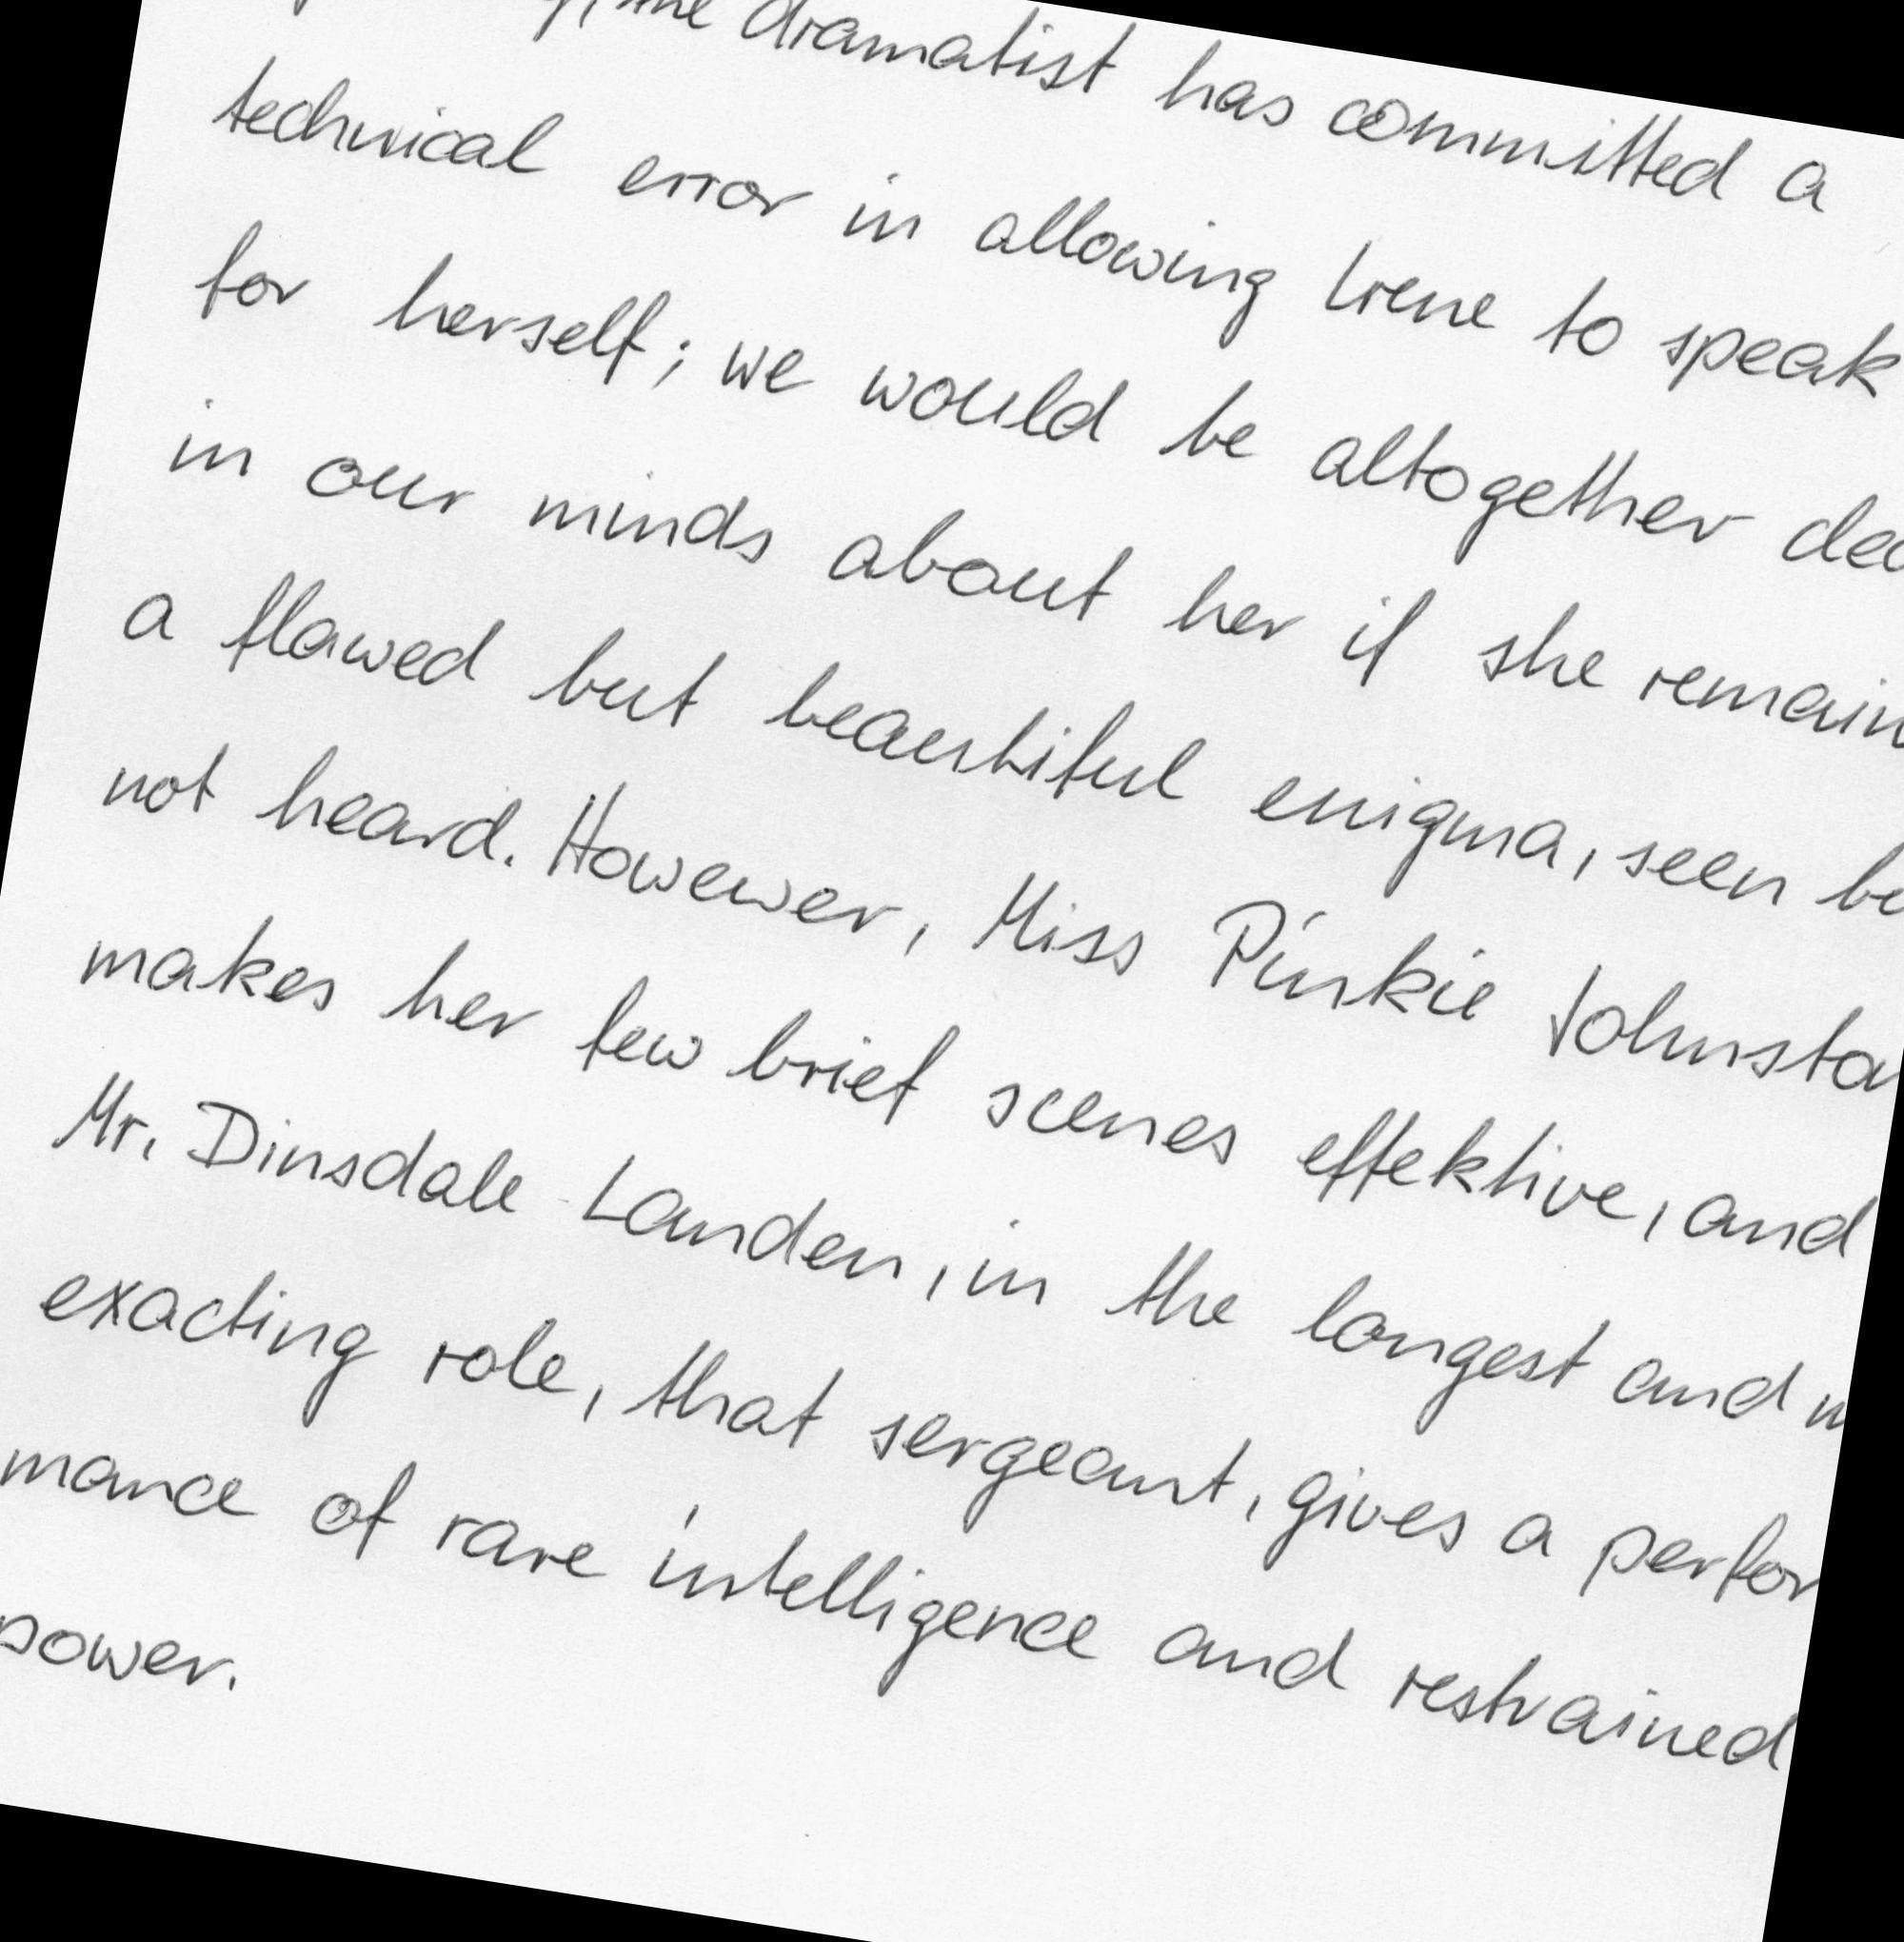 the dramatist has committed a
technical error in allowing Irene to speak
for herself; we would be altogether
in our minds about her if she
a flawed but beautiful enigma, seen
not heard. Howewer, Miss Pinkie
makes her few brief scenes effektive, and
Mr. Dinsdale Landen, in the longest and
exacting role, that sergeant, gives a perfor
mance of rare intelligence and restrained
power.